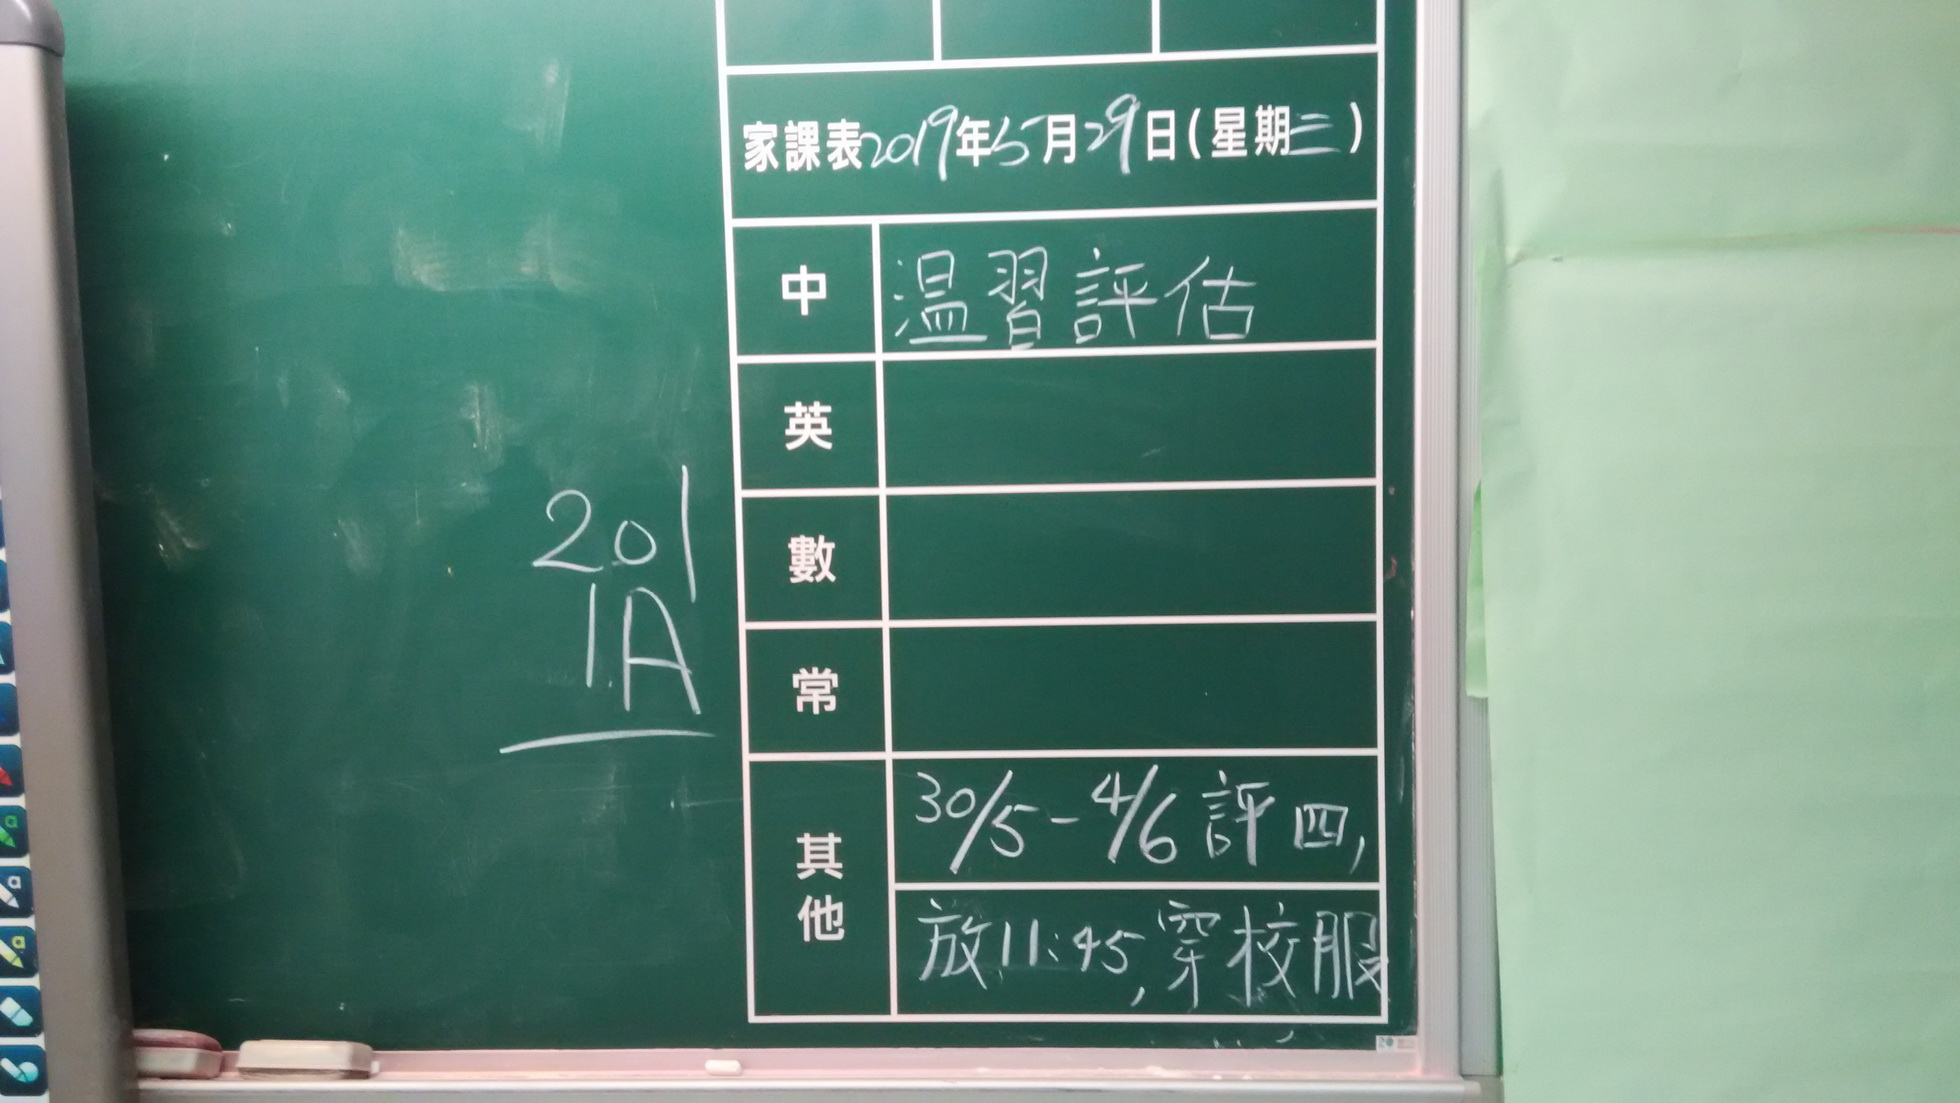 家課表2019年5月29日(星期三)
中 温習評估
英
數
常
其他 30/5-4/6評四,
放11:45,穿校服
201
1A